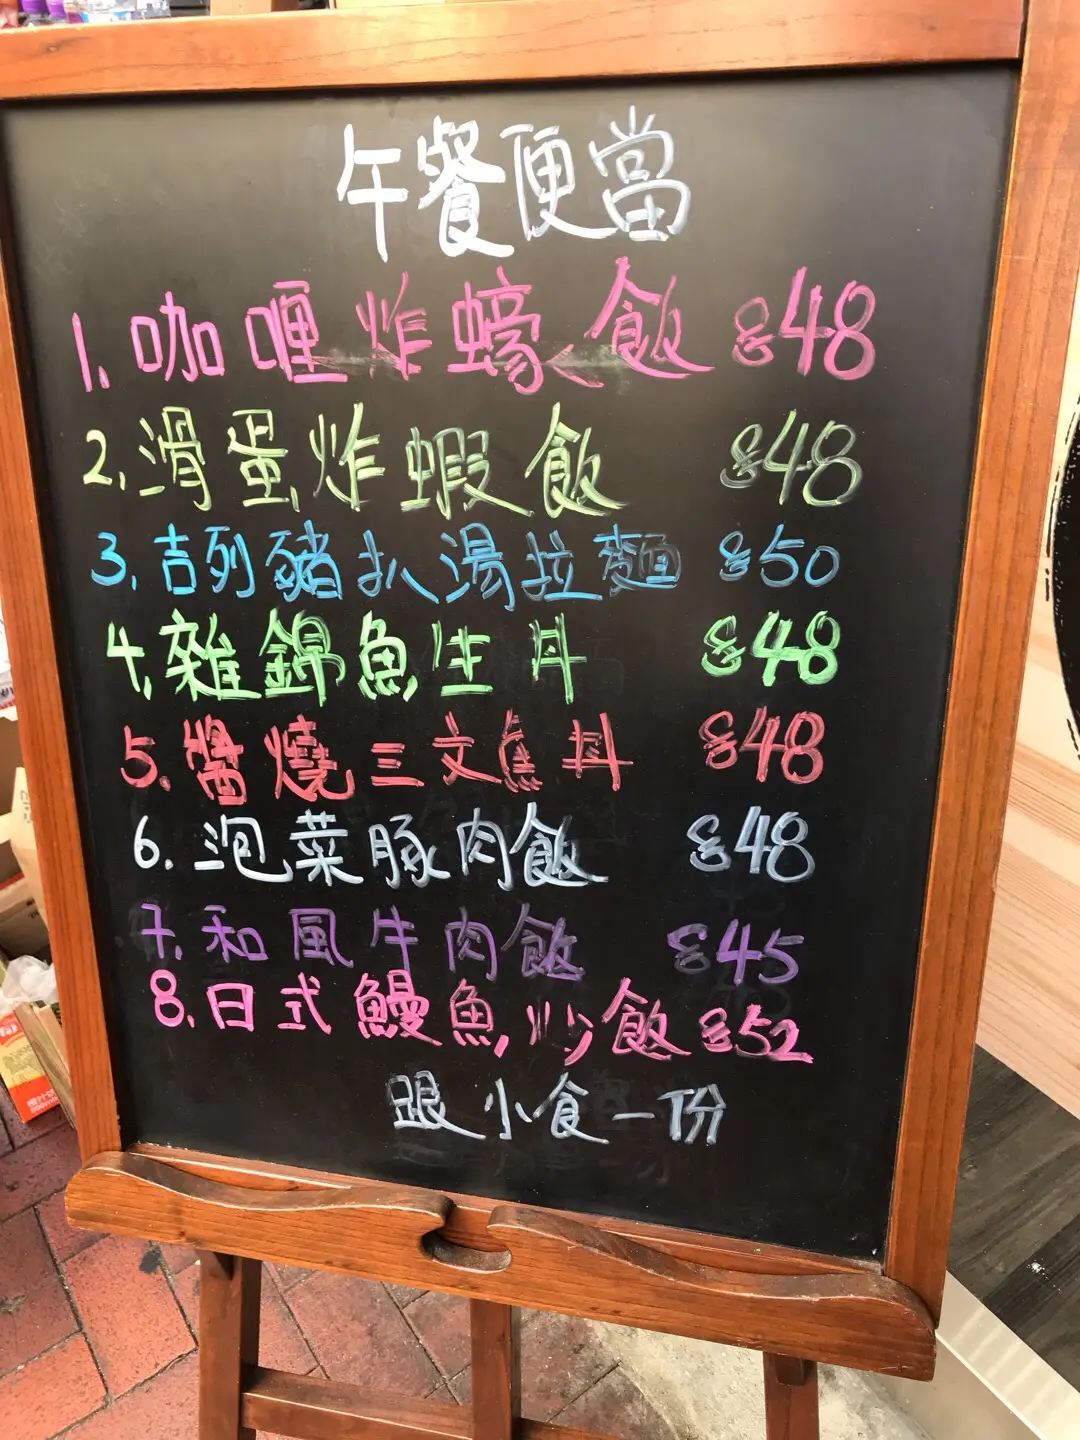 午餐便當
1. 咖喱炸蠔飯 $48
2. 滑蛋炸蝦飯 $48
3. 吉列豬扒湯拉麵 $50
4. 雜錦魚生丼 $48
5. 醬燒三文魚丼 $48
6. 泡菜豚肉飯 $48
7. 和風牛肉飯 $45
8. 日式鰻魚炒飯 $52
跟小食一份